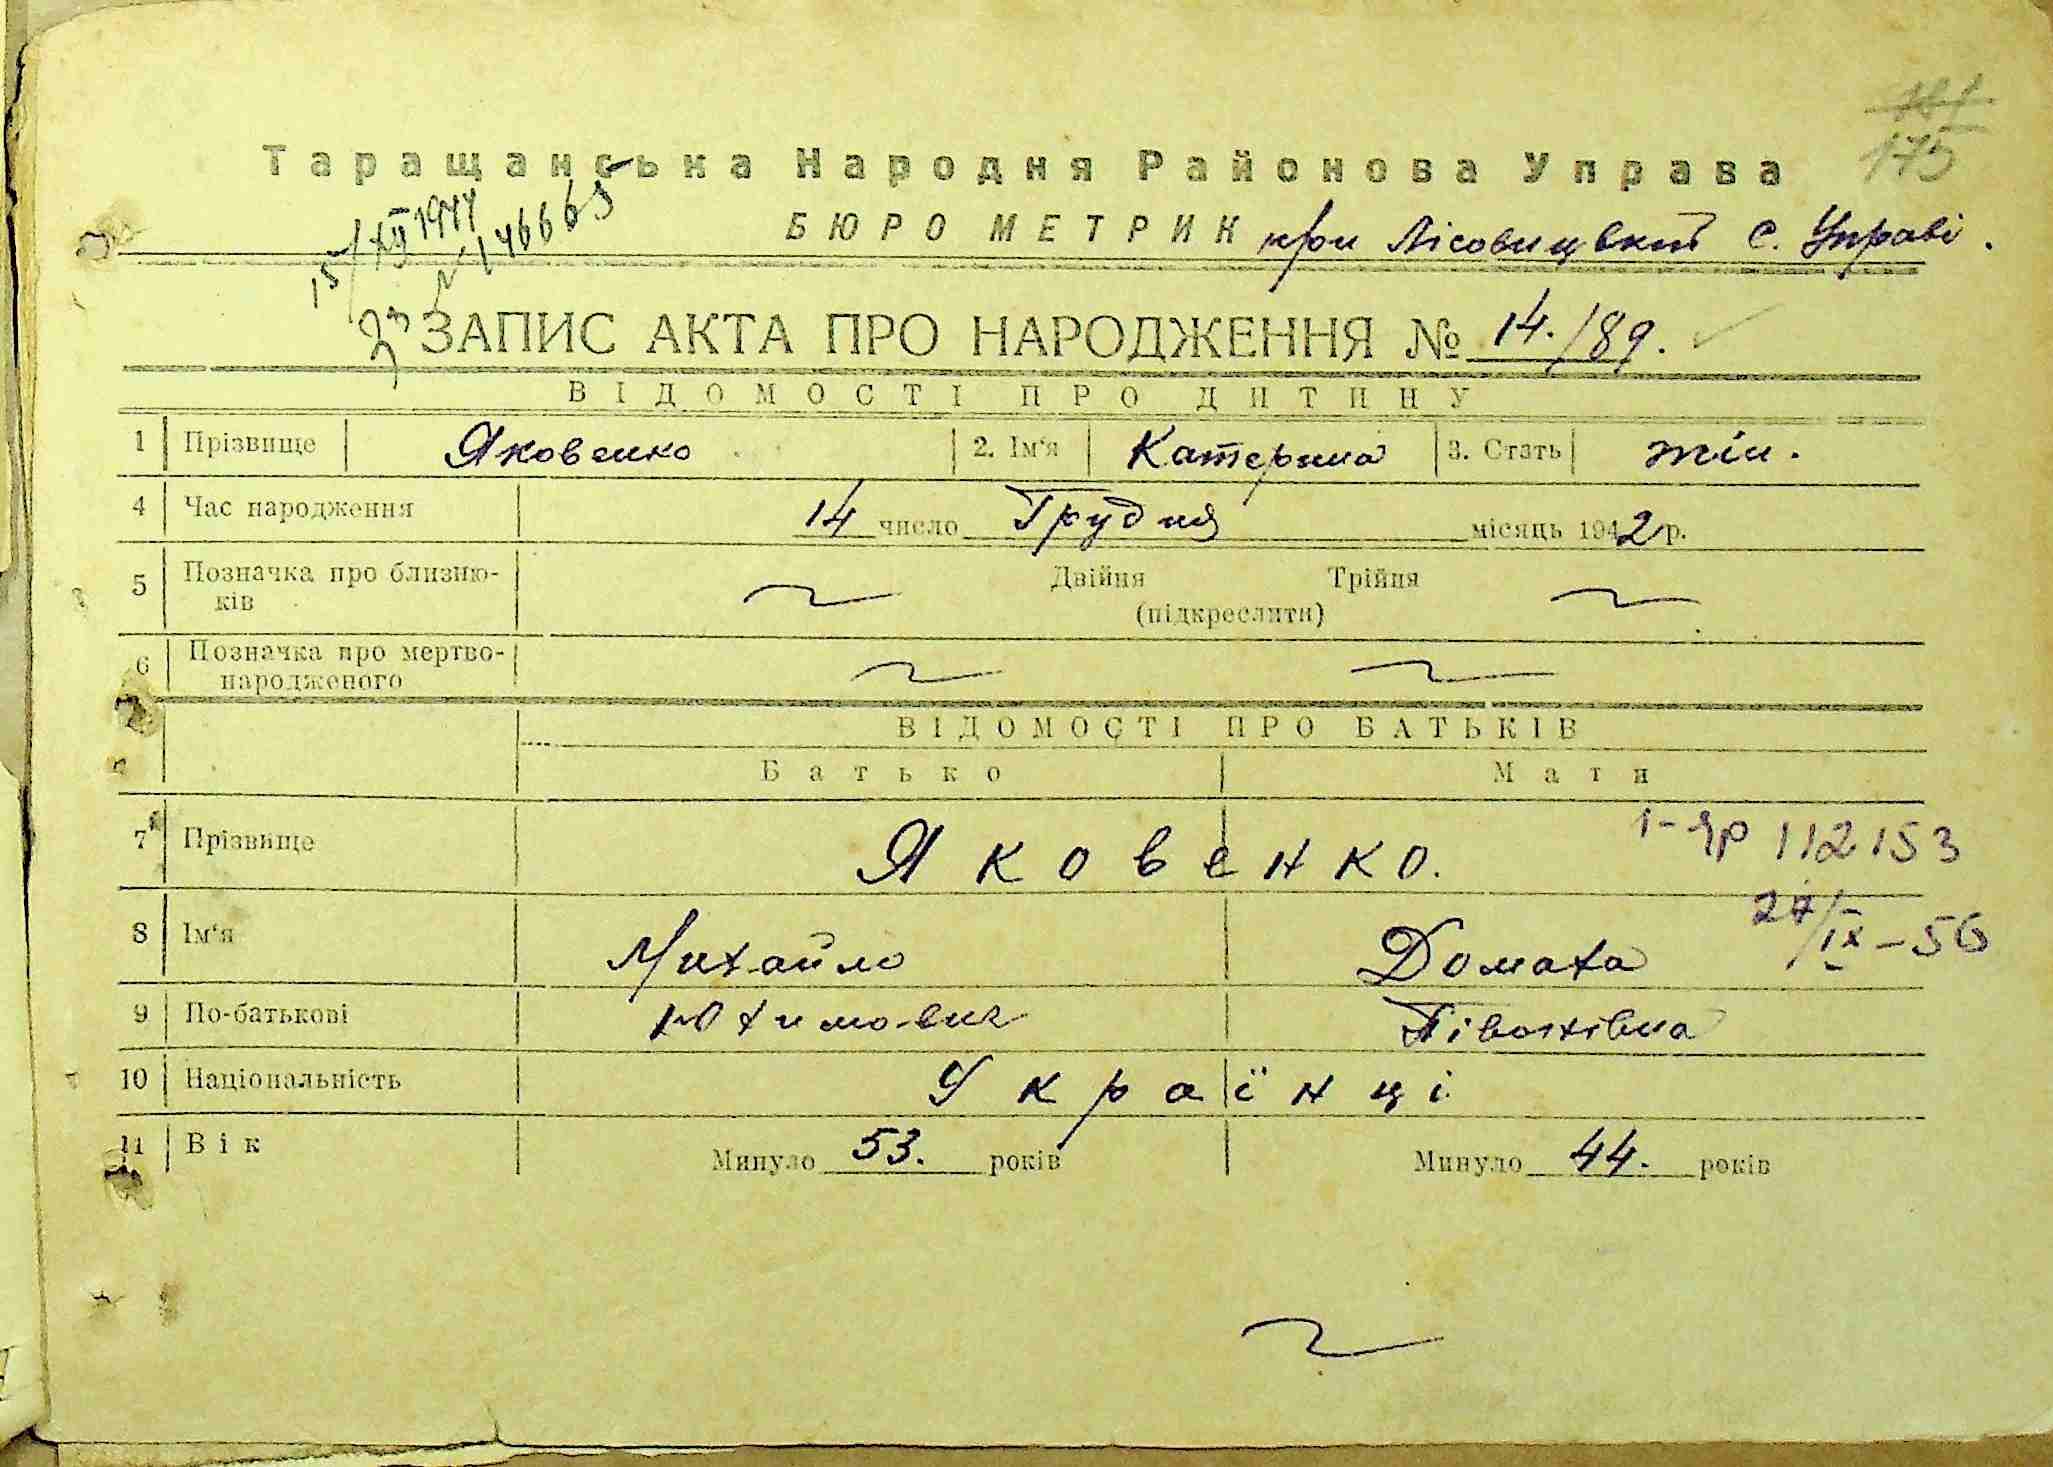 175
Таращанська Народня Районова Управа
БЮРО МЕТРИК при Лісовицькій с. Управі.
15/XII 1944
№ 176665
ЗАПИС АКТА ПРО НАРОДЖЕННЯ № 14./89.
ВІДОМОСТІ ПРО ДИТИНУ
1 Прізвище Яковенко 2. Ім'я Катерина 3. Стать жін.
4 Час народження 14 число Грудня місяць 1942 р.
5 Позначка про близню- Двійня Трійня
ків (підкреслити)
6 Позначка про мертво-
народженого
ВІДОМОСТІ ПРО БАТЬКІВ
Батько Мати
7 Прізвище Яковенко. 112153
8 Ім'я Михайло Домаха 27/IX-56
9 По-батькові Юхимович
10 Національність Українці
11 Вік Минуло 53. років Минуло 44. років